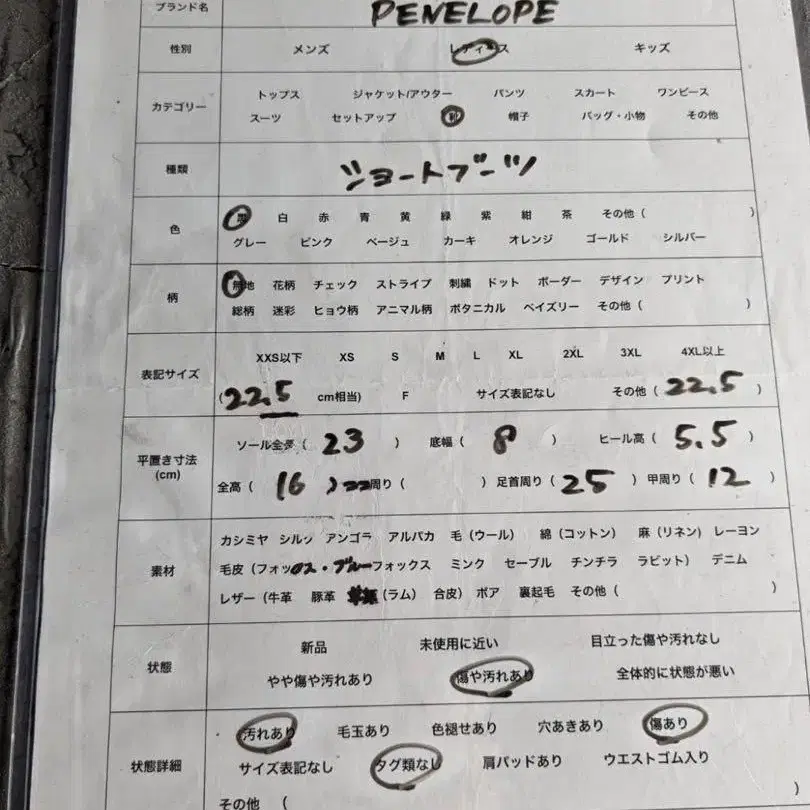 ブランド名 PENELOPE
性別 メンズ レディース キッズ
カテゴリー
トップス ジャケット/アウター パンツ スカート ワンピース
スーツ セットアップ 靴 帽子 バッグ・小物 その他
種類 ショートブーツ
色
黒 白 赤 青 黄 緑 紫 紺 茶 その他 ( )
グレー ピンク ベージュ カーキ オレンジ ゴールド シルバー
柄
無地 花柄 チェック ストライプ 刺繍 ドット ボーダー デザイン プリント
総柄 迷彩 ヒョウ柄 アニマル柄 ボタニカル ペイズリー その他 ( )
表記サイズ
XXS以下 XS S M L XL 2XL 3XL 4XL以上
(22.5 cm相当) F サイズ表記なし その他 (22.5)
平置き寸法
(cm)
ソール全長 ( 23 ) 底幅 ( 8 ) ヒール高 ( 5.5 )
全高 ( 16 ) 周り ( ) 足首周り ( 25 ) 甲周り ( 12 )
素材
カシミヤ シルク アンゴラ アルパカ 毛 (ウール) 綿 (コットン) 麻 (リネン) レーヨン
毛皮 (フォックス・ブルーフォックス ミンク セーブル チンチラ ラビット) デニム
レザー (牛革 豚革 (ラム) 合皮) ボア 裏起毛 その他 ( )
状態
新品 未使用に近い 目立った傷や汚れなし
やや傷や汚れあり 傷や汚れあり 全体的に状態が悪い
状態詳細
汚れあり 毛玉あり 色褪せあり 穴あきあり 傷あり
サイズ表記なし タグ類なし 肩パッドあり ウエストゴム入り
その他 ( )